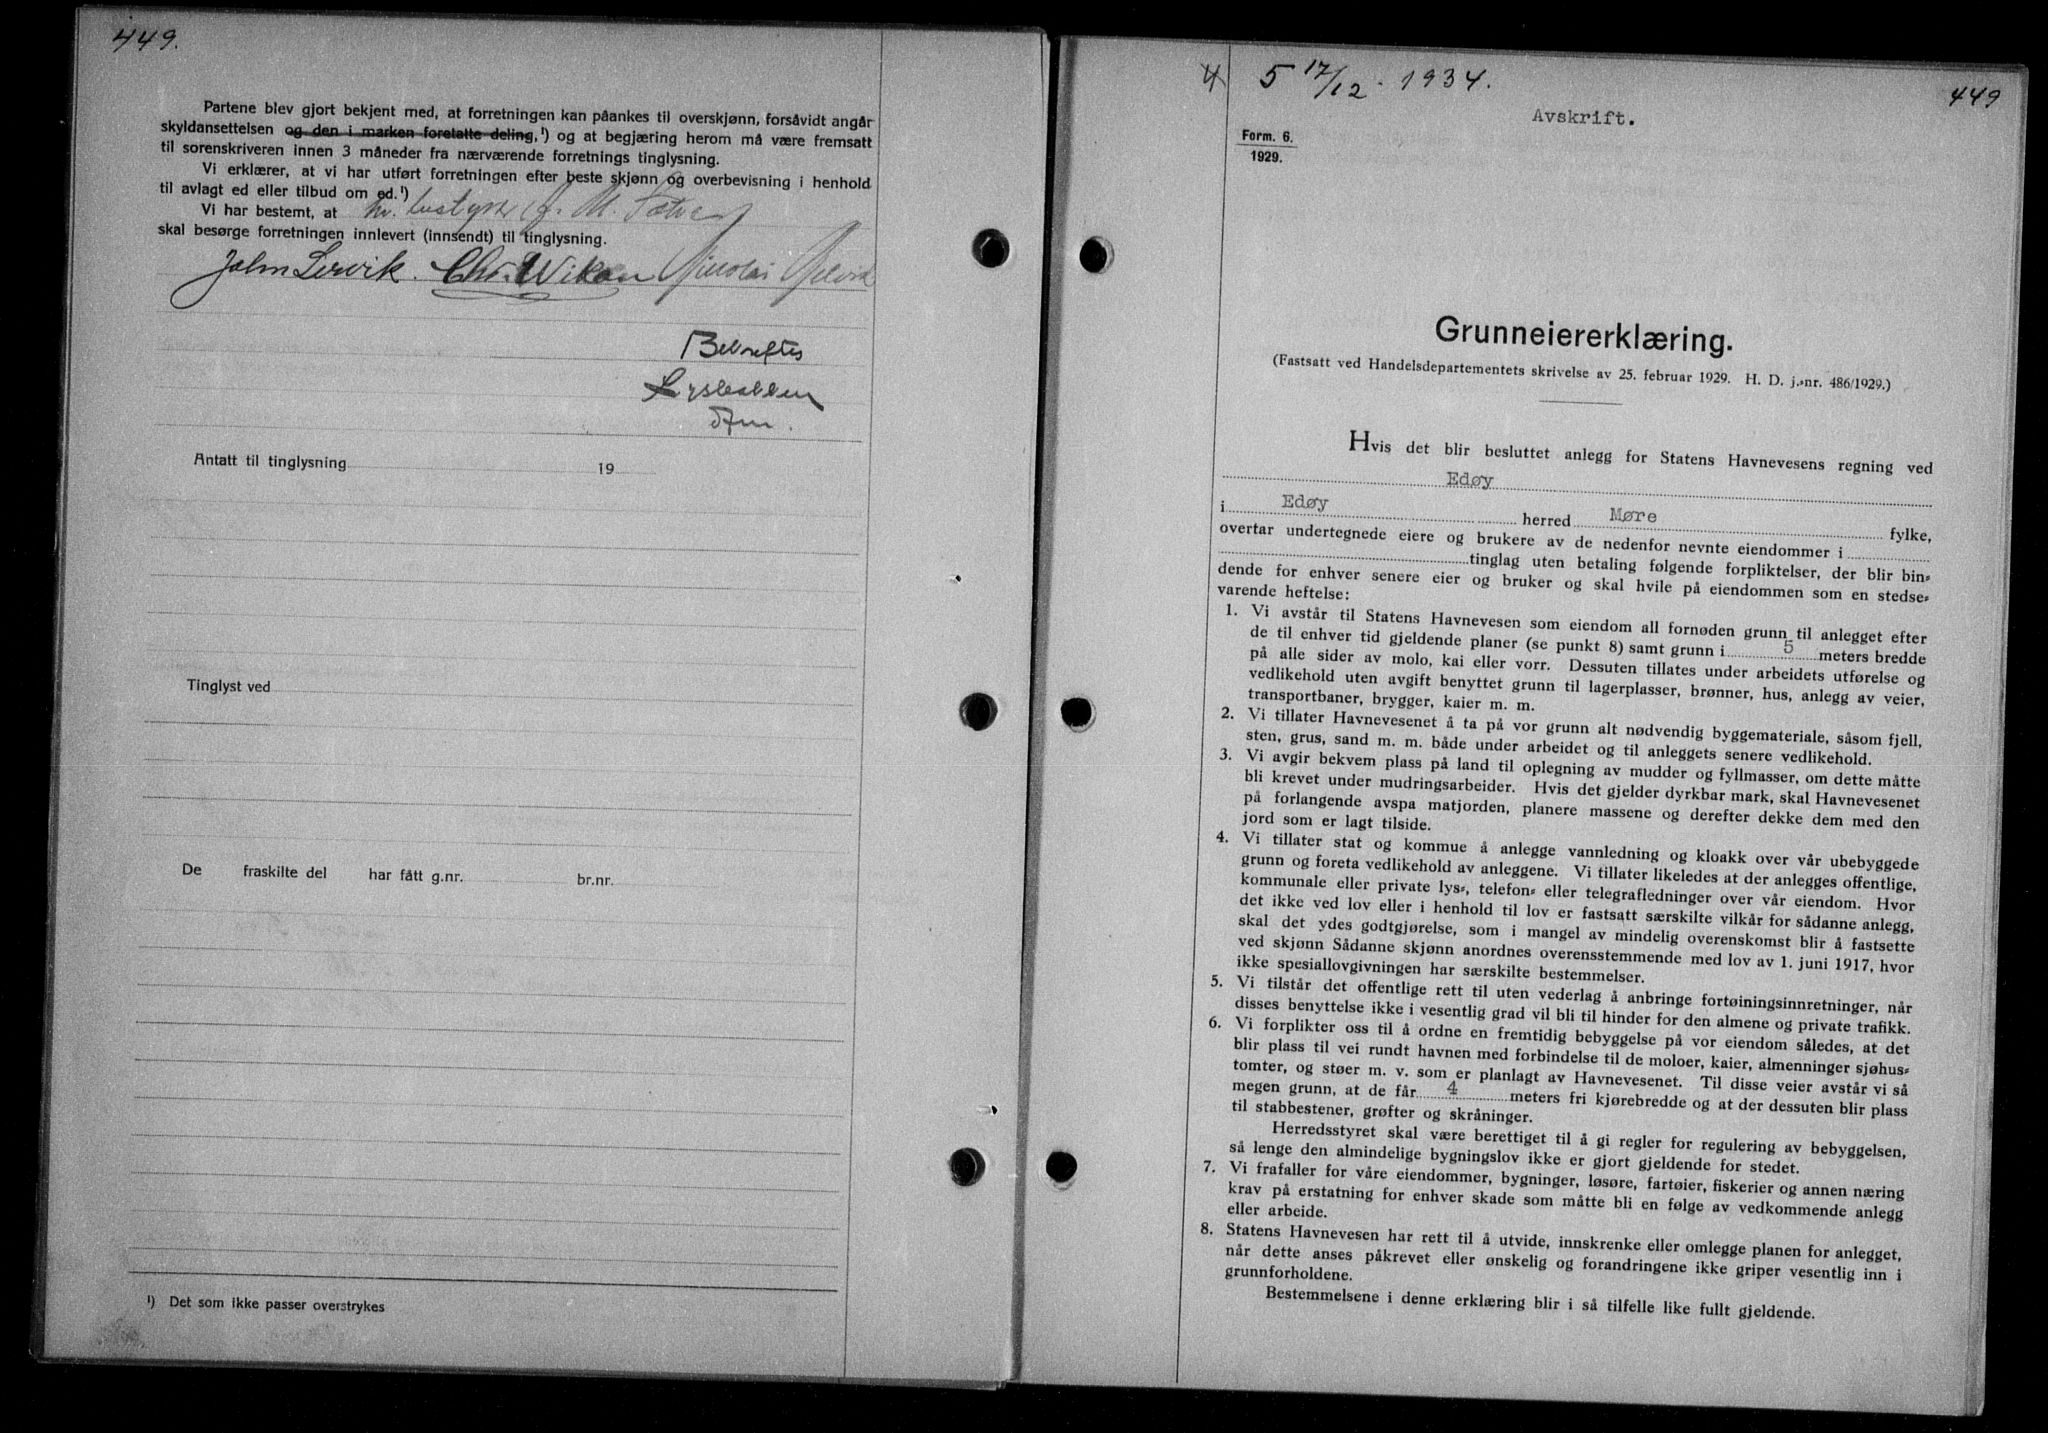 449.
Partene blev gjort bekjent med, at forretningen kan påankes til overskjønn, forsåvidt angår
skyldansettelsen og den i marken foretatte deling,¹) og at begjæring herom må være fremsatt
til sorenskriveren innen 3 måneder fra nærværende forretnings tinglysning.
Vi erklærer, at vi har utført forretningen efter beste skjønn og overbevisning i henhold
til avlagt ed eller tilbud om ed.¹)
Vi har bestemt, at hr.
skal besørge forretningen innlevert (innsendt) til tinglysning.
John Lervik. Chr. Wikan Nikolai
Bekreftes
Antatt til tinglysning 19
Tinglyst ved
De fraskilte del har fått g.nr. br.nr.
¹) Det som ikke passer overstrykes
5 17/12 - 1934.
449
Avskrift.
Form. 6.
1929.
Grunneiererklæring.
(Fastsatt ved Handelsdepartementets skrivelse av 25. februar 1929. H. D. j.-nr. 486/1929.)
Hvis det blir besluttet anlegg for Statens Havnevesens regning ved
Edøy
i Edøy herred Møre fylke,
overtar undertegnede eiere og brukere av de nedenfor nevnte eiendommer i
tinglag uten betaling følgende forpliktelser, der blir bin-
dende for enhver senere eier og bruker og skal hvile på eiendommen som en stedse-
varende heftelse:
1. Vi avstår til Statens Havnevesen som eiendom all fornøden grunn til anlegget efter
de til enhver tid gjeldende planer (se punkt 8) samt grunn i 5 meters bredde
på alle sider av molo, kai eller vorr. Dessuten tillates under arbeidets utførelse og
vedlikehold uten avgift benyttet grunn til lagerplasser, brønner, hus, anlegg av veier,
transportbaner, brygger, kaier m. m.
2. Vi tillater Havnevesenet å ta på vor grunn alt nødvendig byggemateriale, såsom fjell,
sten, grus, sand m. m. både under arbeidet og til anleggets senere vedlikehold.
3. Vi avgir bekvem plass på land til oplegning av mudder og fyllmasser, om dette måtte
bli krevet under mudringsarbeider. Hvis det gjelder dyrkbar mark, skal Havnevesenet
på forlangende avspa matjorden, planere massene og derefter dekke dem med den
jord som er lagt tilside.
4. Vi tillater stat og kommue å anlegge vannledning og kloakk over vår ubebyggede
grunn og foreta vedlikehold av anleggene. Vi tillater likeledes at der anlegges offentlige,
kommunale eller private lys-, telefon- eller telegrafledninger over vår eiendom. Hvor
det ikke ved lov eller i henhold til lov er fastsatt særskilte vilkår for sådanne anlegg,
skal det ydes godtgjørelse, som i mangel av mindelig overenskomst blir å fastsette
ved skjønn Sådanne skjønn anordnes overensstemmende med lov av 1. juni 1917, hvor
ikke spesiallovgivningen har særskilte bestemmelser.
5. Vi tilstår det offentlige rett til uten vederlag å anbringe fortøiningsinnretninger, når
disses benyttelse ikke i vesentlig grad vil bli til hinder for den almene og private trafikk.
6. Vi forplikter oss til å ordne en fremtidig bebyggelse på vor eiendom således, at det
blir plass til vei rundt havnen med forbindelse til de moloer, kaier, almenninger sjøhus-
tomter, og støer m. v. som er planlagt av Havnevesenet. Til disse veier avstår vi så
megen grunn, at de får 4 meters fri kjørebredde og at der dessuten blir plass
til stabbestener, grøfter og skråninger.
Herredsstyret skal være berettiget til å gi regler for regulering av bebyggelsen,
så lenge den almindelige bygningslov ikke er gjort gjeldende for stedet.
7. Vi frafaller for våre eiendommer, bygninger, løsøre, fartøier, fiskerier og annen næring
krav på erstatning for enhver skade som måtte bli en følge av vedkommende anlegg
eller arbeide.
8. Statens Havnevesen har rett til å utvide, innskrenke eller omlegge planen for anlegget,
når dette anses påkrevet eller ønskelig og forandringene ikke griper vesentlig inn i
grunnforholdene.
Bestemmelsene i denne erklæring blir i så tilfelle like fullt gjeldende.